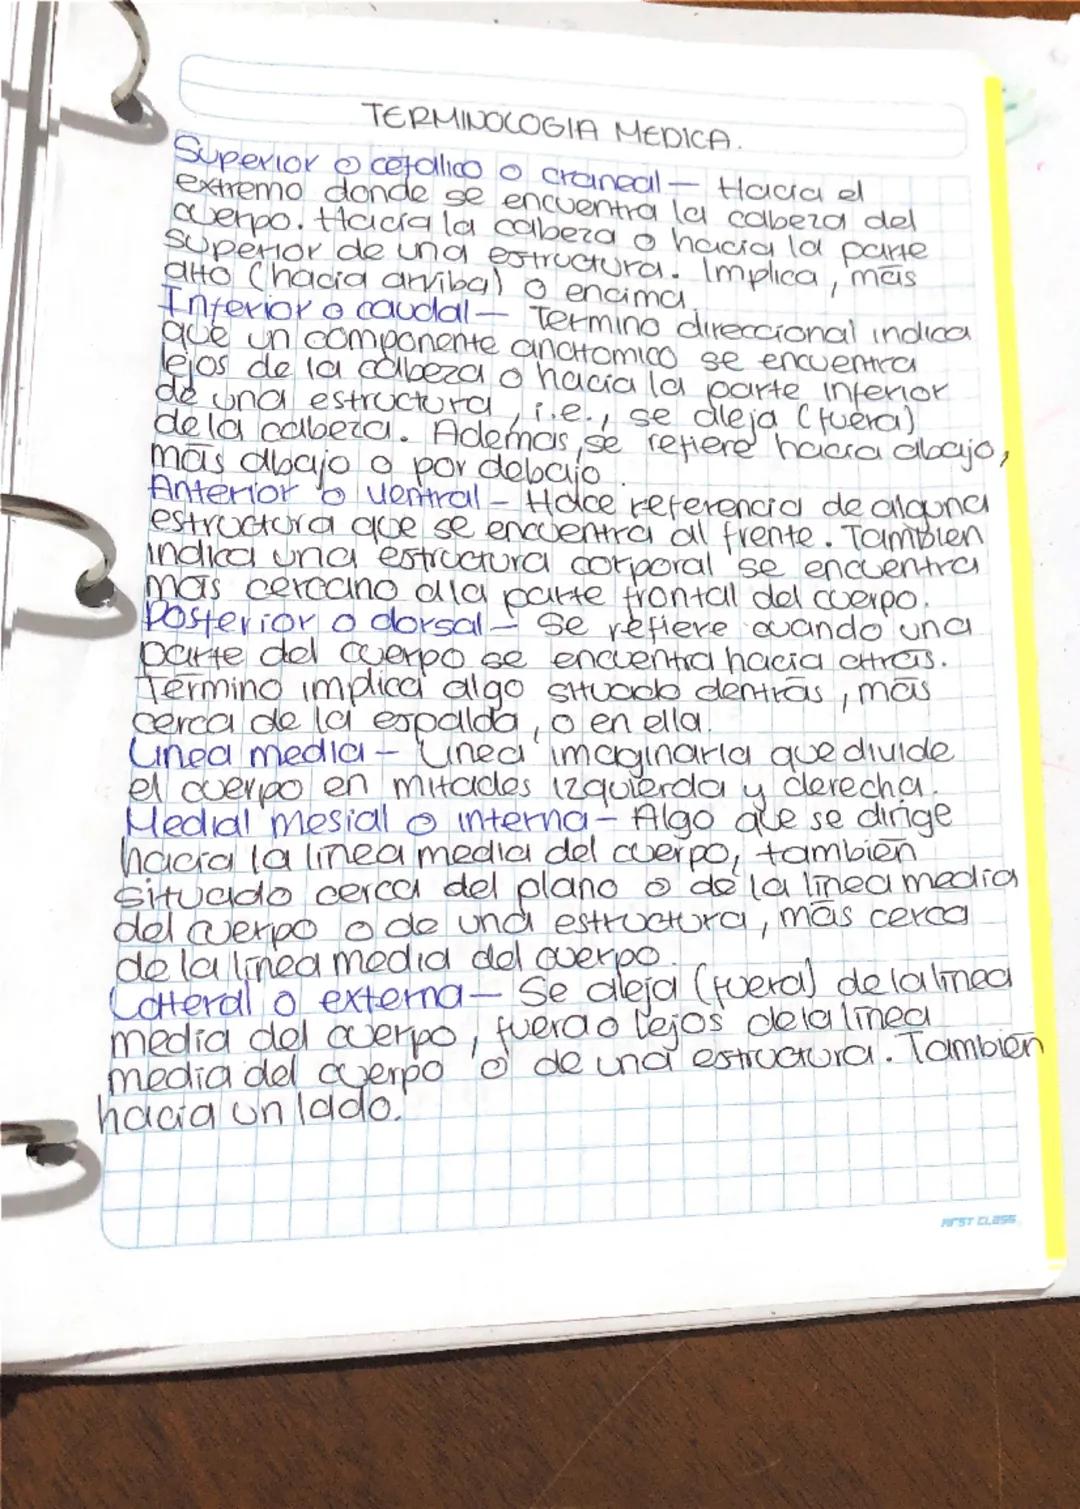 TERMINOLOGIA MEDICA.
Superior o cefalico o craneal — Hacia el
extremo donde se encuentra la cabeza del
cuerpo. Hacia la cabeza o hacia la parte
superior de una estructura. Implica, más
alto (hacia arriba) o encima.
Inferior o caudal — Termino direccional indica
que un componente anatomico se encuentra
lejos de la cabeza o hacia la parte inferior
de una estructura, i.e., se aleja (fuera)
de la cabeza. Ademas, se refiere hacia abajo,
más abajo o por debajo.
Anterior o ventral - Hace referencia de alguna
estructura que se encuentra al frente. Tambien
indica una estructura corporal se encuentra
mas cercano a la parte frontal del cuerpo.
Posterior o dorsal - Se refiere cuando una
parte del cuerpo se encuentra hacia atras.
Término implica algo situado dentrás, más
cerca de la espalda, o en ella.
Linea media - Linea imaginaria que divide
el cuerpo en mitades izquierda y derecha.
Medial mesial o interna - Algo que se dirige
hacia la línea media del cuerpo, también
situado cerca del plano o de la línea media
del cuerpo o de una estructura, más cerca
de la línea media del cuerpo.
Lateral o externa — Se aleja (fuera) de la línea
media del cuerpo, fuera o lejos de la línea
media del cuerpo o de una estructura. También
hacia un lado.
FIRST CLASS